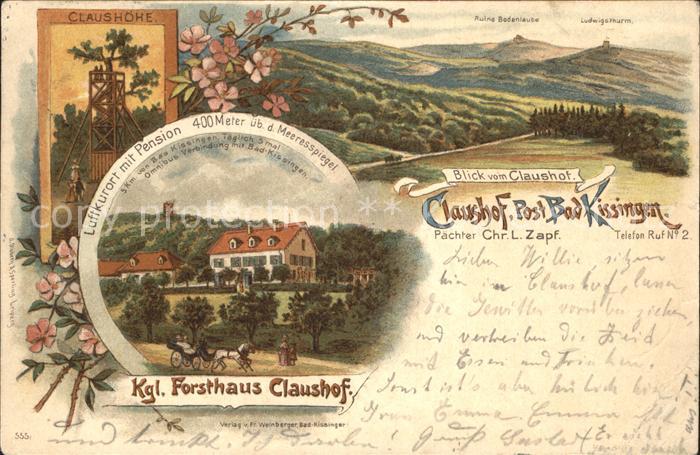 CLAUSHÖHE.
Ruine Bodenlaube
Ludwigsthurm.
Luftkurort mit Pension 400 Meter üb. d. Meeresspiegel
5 Km. von Bad Kissingen. Täglich 5 mal
Omnibus Verbindung mit Bad-Kissingen.
** copy protection **
Blick vom Claushof.
Claushof, Post Bad Kissingen.
Pächter Chr. L. Zapf. Telefon Ruf Nº 2.
Lieber Willie sitzen
hier im Claushof, lassen
die Gewitter vorüber ziehen
und vertreiben die Zeit
mit Essen und Trinken.
Sonst ist's aber hübsch hier
Frau Emma Emma
und trinkt. Gruß Gustav
Er
Kgl. Forsthaus Claushof.
Verlag v. Fr. Weinberger, Bad-Kissingen
555.